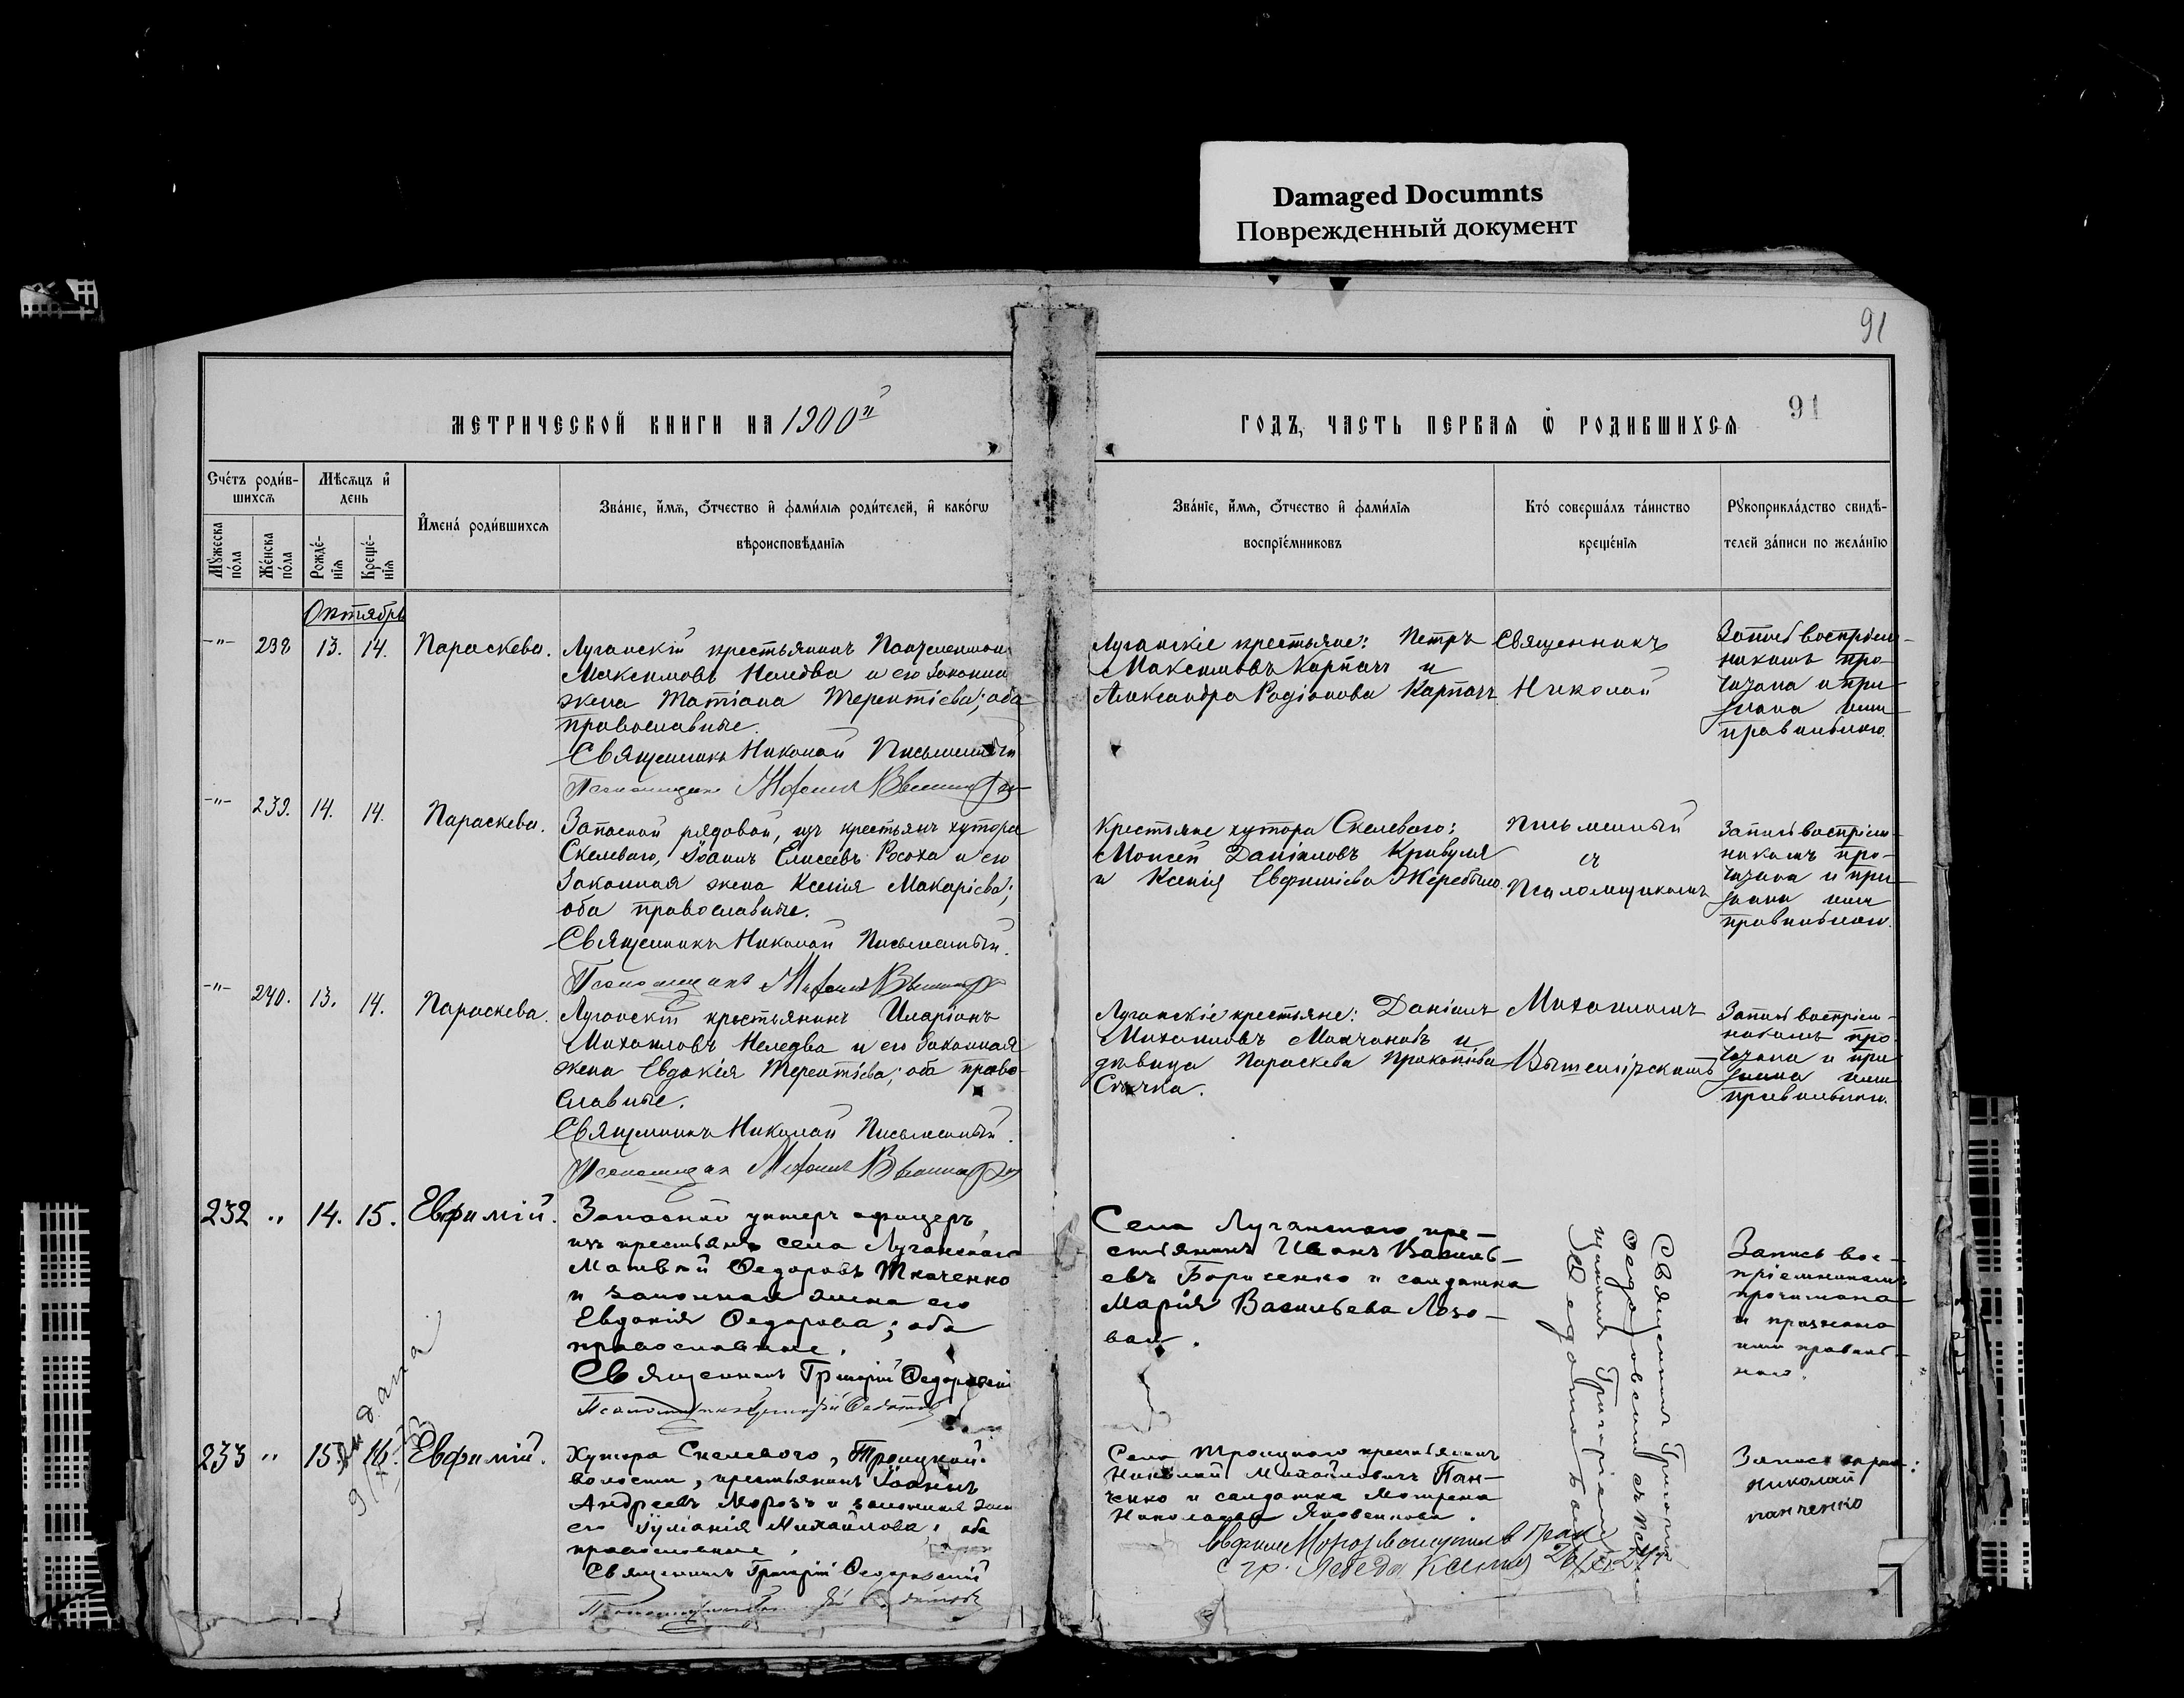 Damaged Documnts
Поврежденный документ
91
МЕТРИЧЕСКОЙ КНИГИ НА 1900й
ГОДЪ, ЧАСТЬ ПЕРВАЯ Ѡ РОДИВШИХСЯ
91
Счетъ родив-
шихся
Мѣсяцъ и
день
Мужеска
пола
Женска
пола
Рожде-
нія
Креще-
нія
Имена родившихся
Званіе, имя, отчество и фамилія родителей, и какогѡ
вѣроисповѣданія
Званіе, имя, отчество и фамилія
воспріемниковъ
Кто совершалъ таинство
крещенія
Рукоприкладство свидѣ-
телей записи по желанію
Октябрь
-"- 238 13. 14. Параскева.
Луганскій крестьянинъ
Максимовъ Неледва и его законная
жена Татіана Терентіева; оба
православные.
Священникъ Николай Письменный
Псаломщикъ Михаилъ
Луганскіе крестьяне: Петръ
Максимовъ Карпачъ и
Александра Родіонова Карпачъ
Священникъ
Николай
Запись воспріем-
никамъ про-
читана и при-
знана ими
правильною.
-"- 239. 14. 14. Параскева.
Запасной рядовой, изъ крестьянъ хутора
Скелеваго, Іоаннъ Елисеевъ Росоха и его
законная жена Ксенія Макаріева;
оба православные.
Священникъ Николай Письменный.
Псаломщикъ Михаилъ
Крестьяне хутора Скелеваго:
Моисей Даніиловъ Кривуля
и Ксенія Евфиміева Жеребило.
Письменный
съ
Псаломщикомъ
Запись воспріем-
никамъ про-
читана и при-
знана ими
правильною.
-"- 240. 13. 14. Параскева.
Луганскій крестьянинъ Иларіонъ
Михаиловъ Неледва и его законная
жена Евдокія Терентіева; оба право-
славные.
Священникъ Николай Письменный.
Псаломщикъ Михаилъ
Луганскіе крестьяне: Даніилъ
Михаиловъ Молчановъ и
дѣвица Параскева Прокопіева
Михаиломъ
Запись воспріем-
никамъ про-
читана и при-
знана ими
правильною.
232 " 14. 15. Евфимій.
Запасной унтеръ офицеръ,
изъ крестьянъ села Луганскаго
Матвѣй Ѳедоровъ Ткаченко
и законная жена его
Евдокія Ѳедорова; оба
православные.
Священникъ Григорій Ѳедоровскій
Села Луганскаго кре-
стьянинъ Иванъ Василь-
евъ Борисенко и солдатка
Марія Васильева Лозо-
вая.
Священникъ Григорій
Ѳедоровскій съ псалом-
щикомъ Григоріемъ
Запись вос-
пріемникамъ
прочитана
и признана
ими правиль-
ною.
233 " 15. 16. Евфимій.
Хутора Скелеваго, Троицкой
волости, крестьянинъ Іоаннъ
Андреевъ Морозъ и законная жена
его Іуліанія Михайлова; оба
православные.
Священникъ Григорій Ѳедоровскій
Села Троицкаго крестьянинъ
Николай Михайловичъ Пан-
ченко и солдатка Мотрона
Николаева Яковенкова.
Николай
панченко
Евфим Мороз вступил в брак
с гр. Лебеда Ксения